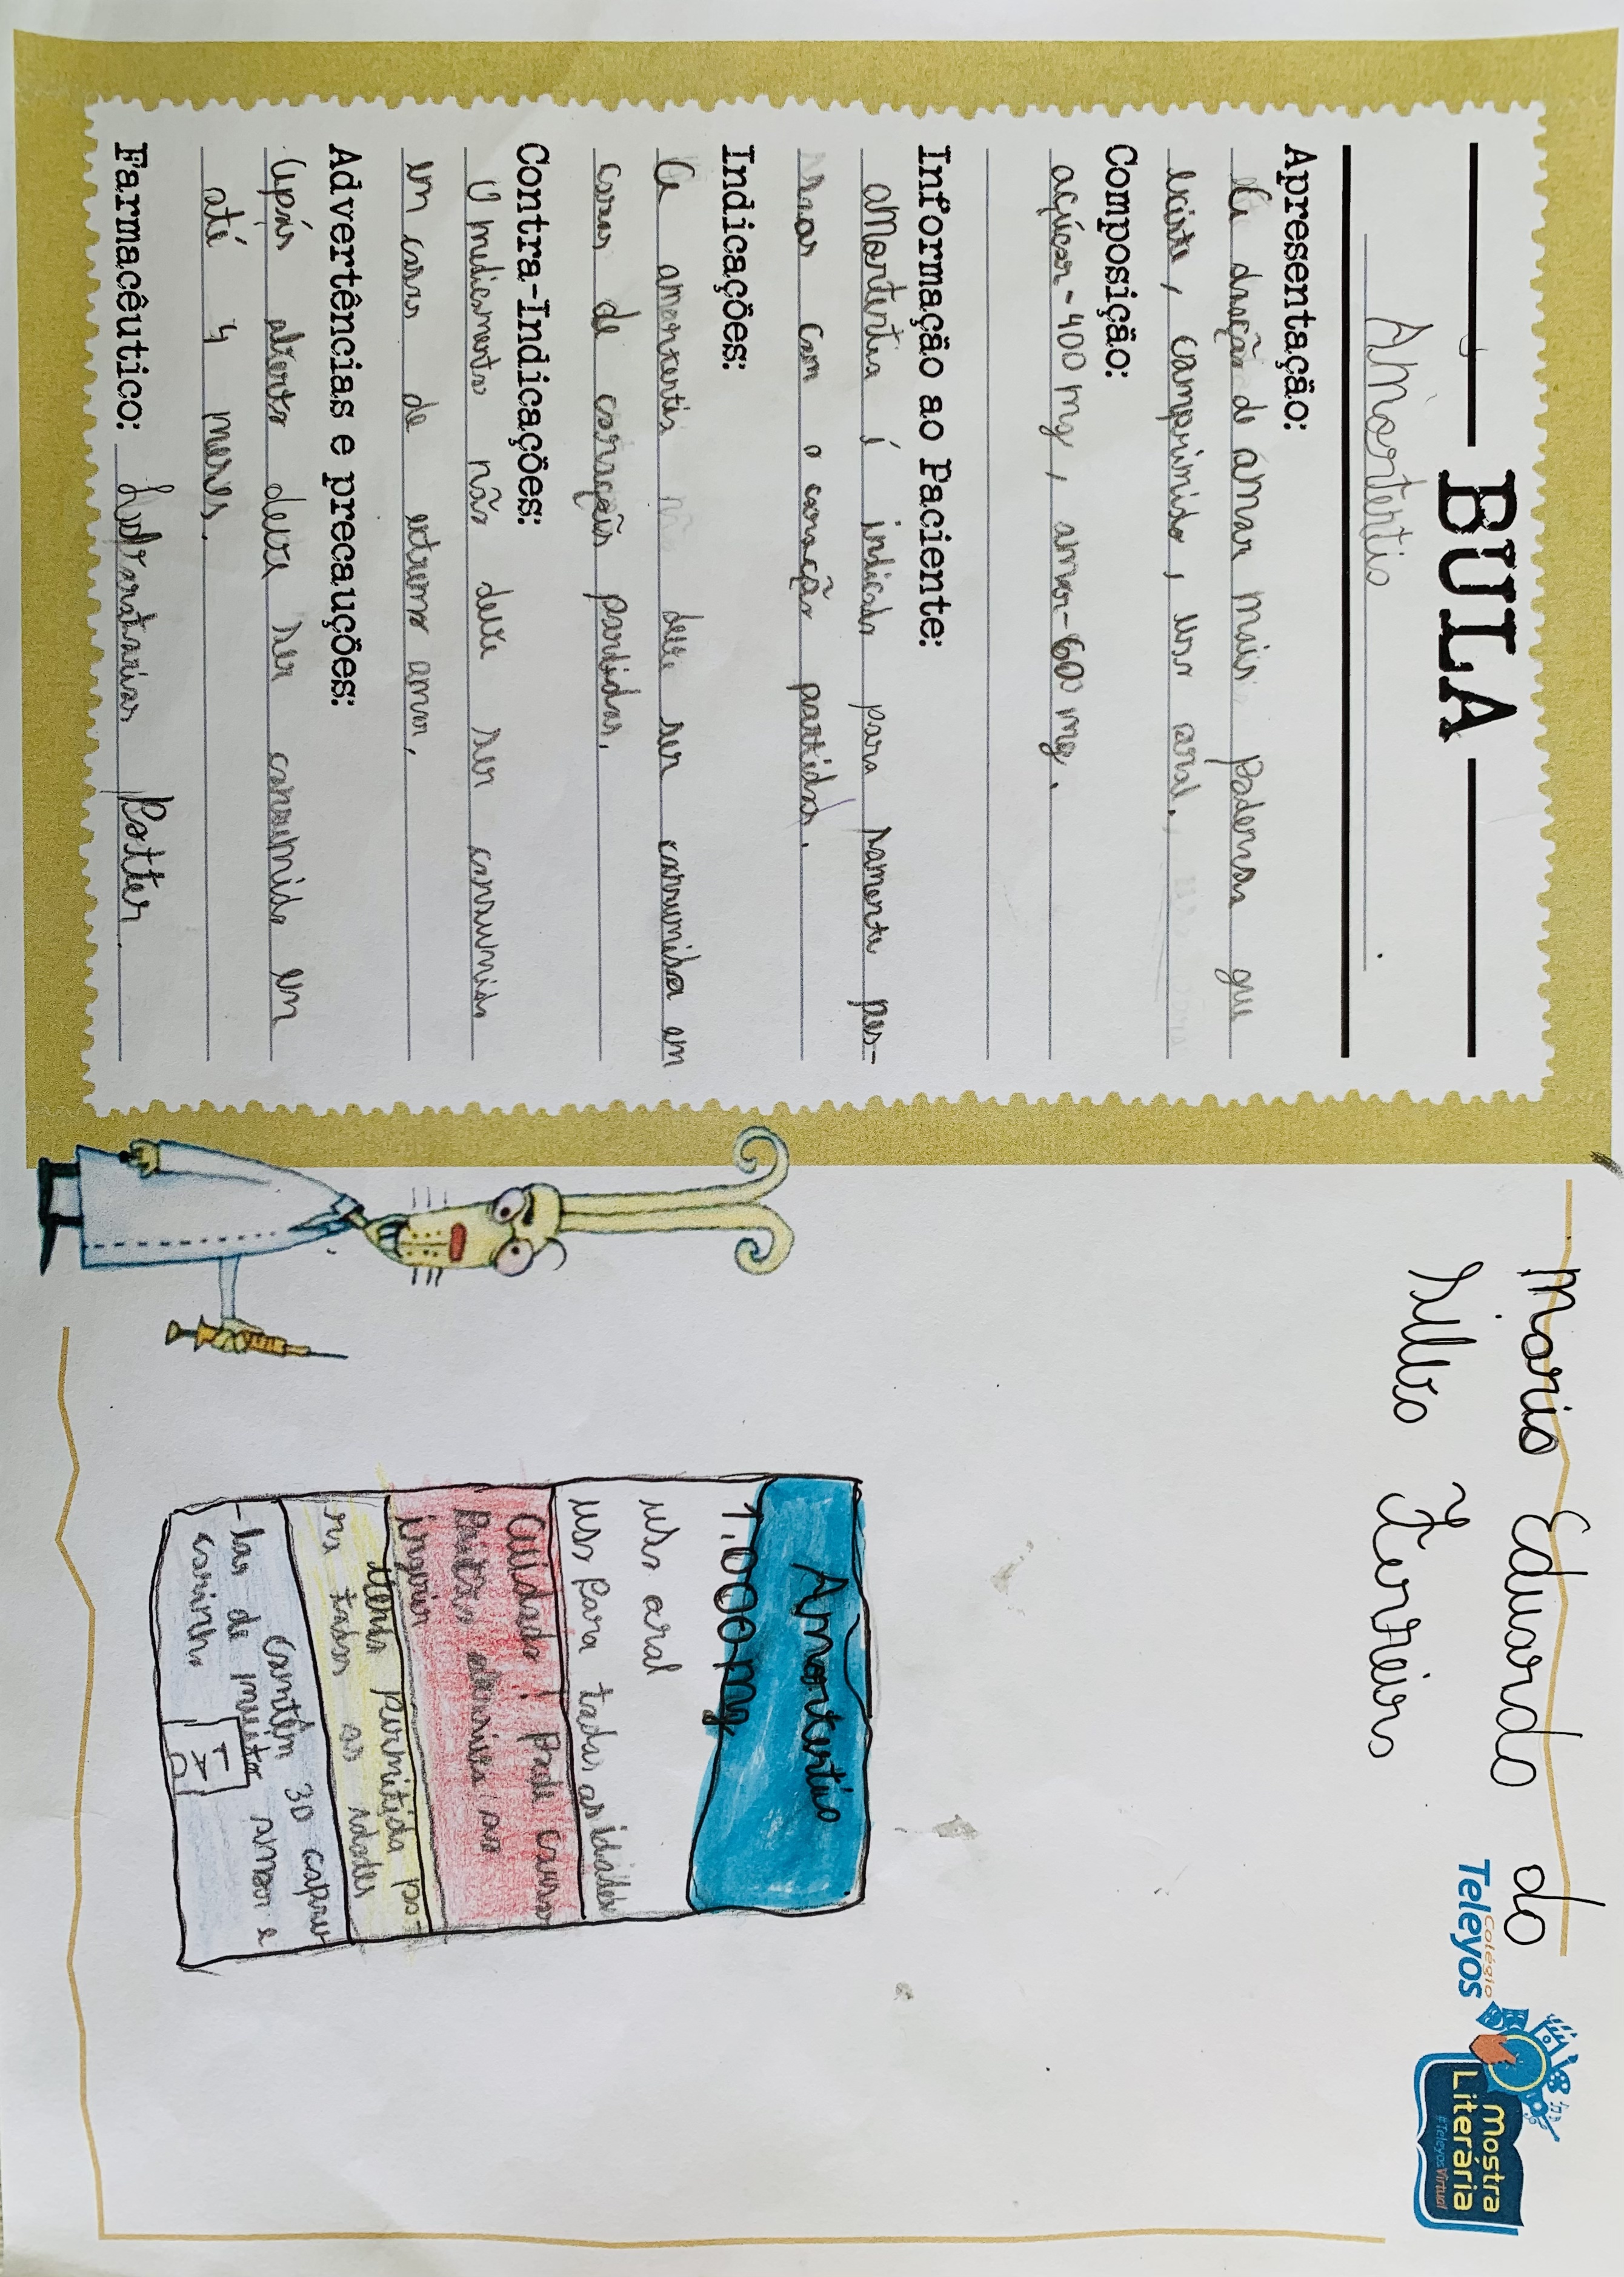 BULA
Amortentia
Apresentação:
A doação de amar mais poderosa que
existe, comprimido, uso oral.
Composição:
açúcar-400 mg, amor-600 mg.
Informação ao Paciente:
amortentia é indicado para somente pes-
soas com o coração partidos.
Indicações:
A amortentia deve ser consumida em
casos de corações partidos.
Contra-Indicações:
O medicamento não deve ser consumido
em casos de extremo amor.
Advertências e precauções:
Após aberto deve ser consumido em
até 4 meses.
Farmacêutico: Laboratórios Potter.
Maria Eduarda da
Silva Ferreira
Colégio
Teleyos
Mostra
Literária
#TeleyosVirtual
Amortentia
1.000 mg
uso oral
uso para todas as idades
Cuidado! Pode causar
paixão ao
ingerir
Venda permitida pa-
ra todas as idades
Contém 30 capsu-
las de muito amor e
carinho